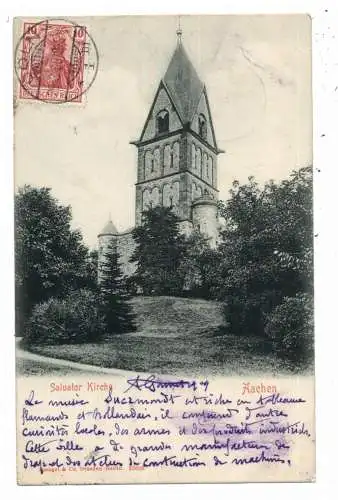 10 10
Salvator Kirche
Aachen
Le musée Suermondt est riche en tableaux
flamands et Hollandais, il contient d'autre
curiosités locales, des armes et des produits industriels.
Cette ville a de grande manufacture de
drap et des ateliers de construction de machines.